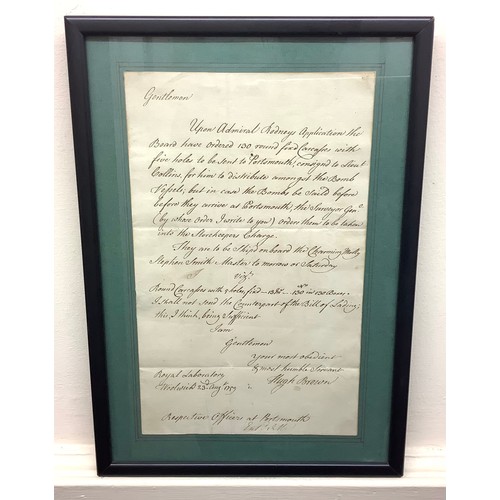 Gentlemen
Upon Admiral Rodneys Application the
Board have ordered 130 round fixd Carcasses with
five holes to be sent to Portsmouth, consigned to Lieut
Collins, for him to distribute amongst the Bomb
Vessels, but in case the Bombs be Saild before
before they arrive at Portsmouth, the Surveyor Genl.
(by whose Order I write to you) orders them to be taken
into the Storekeepers Charge.
They are to be Shipd on board the Charming Molly
Stephen Smith Master to morrow or Saturday
Vizt.
Round Carcasses with 5 holes fixd 130 in 130 Boxes
I shall not send the Counterpart of the Bill of Lading;
this, I think, being Sufficient
I am
Gentlemen
Your most obedient
& most humble Servant
Royal Laboratory Hugh Brown
Woolwich 23d. Augt. 1759
Respective Officers at Portsmouth